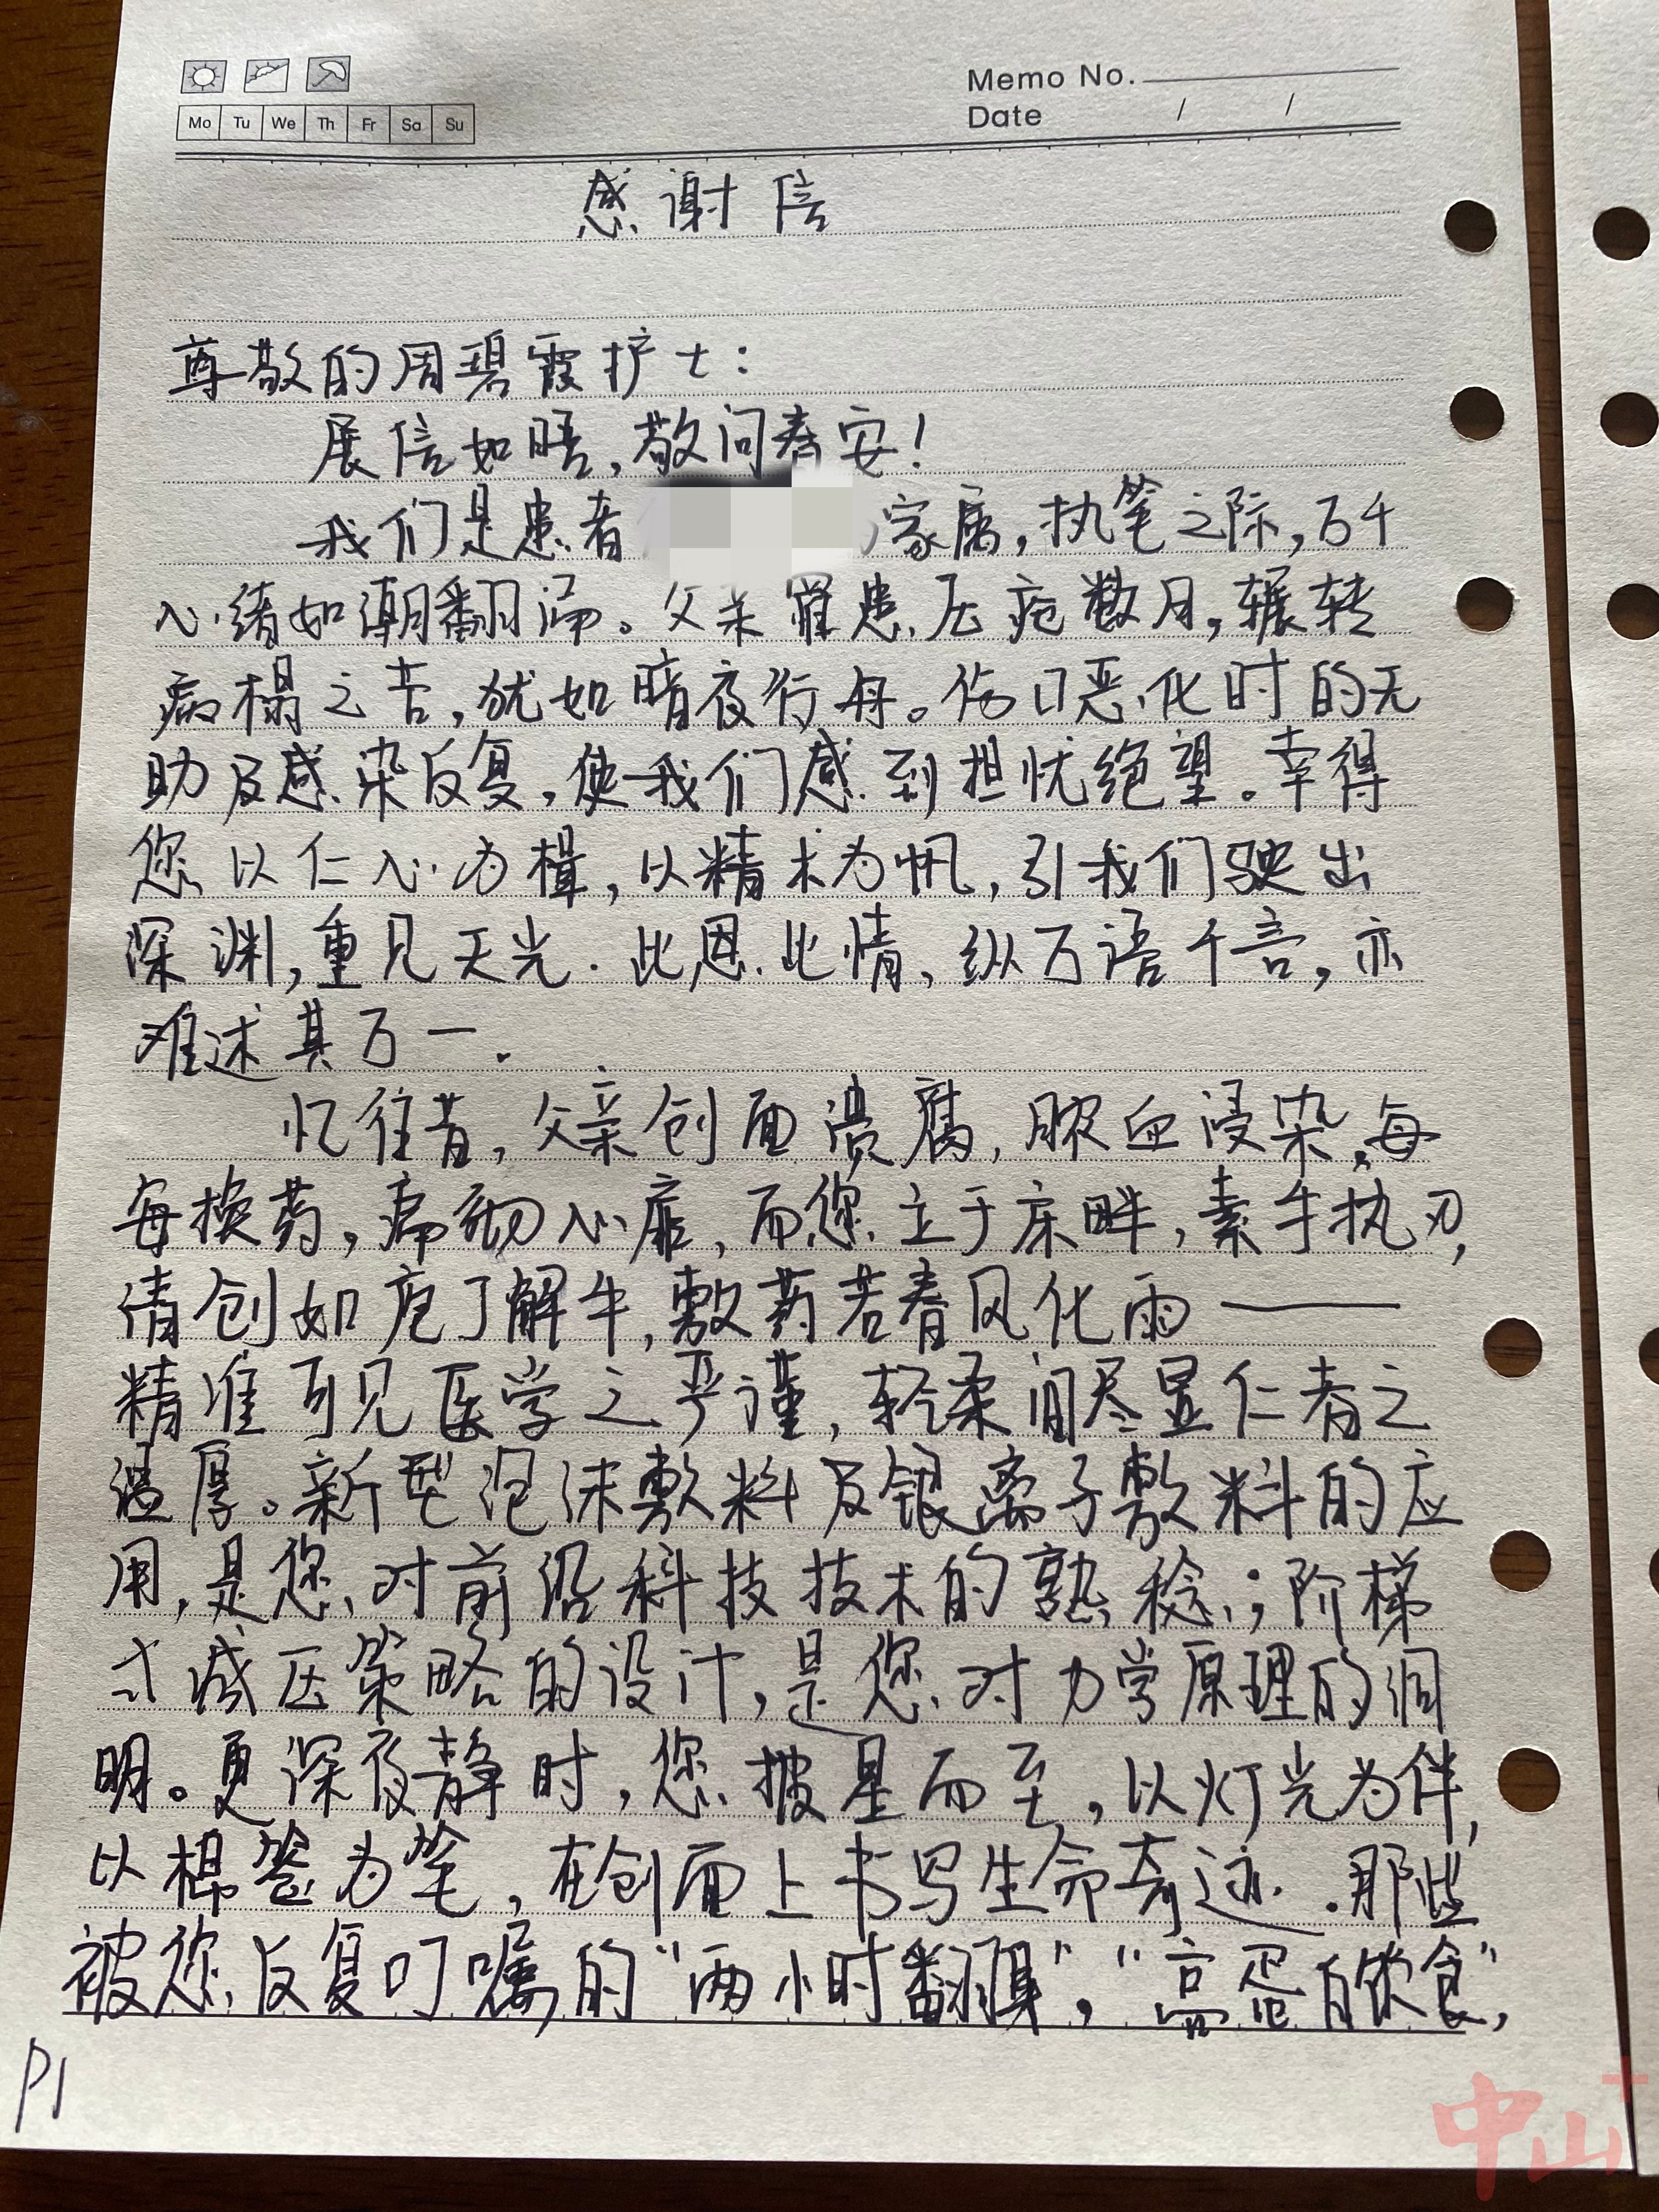 Memo No.
Mo Tu We Th Fr Sa Su
Date / /
感谢信
尊敬的周碧霞护士：
展信如晤，敬问春安！
我们是患者 家属，执笔之际，万千
心绪如潮翻涌。父亲罹患压疮数月，辗转
病榻之苦，犹如暗夜行舟。伤口恶化时的无
助及感染反复，使我们感到担忧绝望。幸得
您以仁心为楫，以精术为帆，引我们驶出
深渊，重见天光．此恩此情，纵万语千言，亦
难述其万一．
忆往昔，父亲创面溃腐，脓血浸染，每
每换药，痛彻心扉，而您立于床畔，素手执刃，
清创如庖丁解牛，敷药若春风化雨——
精准可见医学之严谨，轻柔间尽显仁者之
温厚。新型泡沫敷料及银离子敷料的应
用，是您对前沿科技技术的熟稔；阶梯
式减压策略的设计，是您对力学原理的洞
明。更深夜静时，您披星而至，以灯光为伴，
以棉签为笔，在创面上书写生命奇迹．那些
被您反复叮嘱的“两小时翻身”，“高蛋白饮食”，
P1
中山